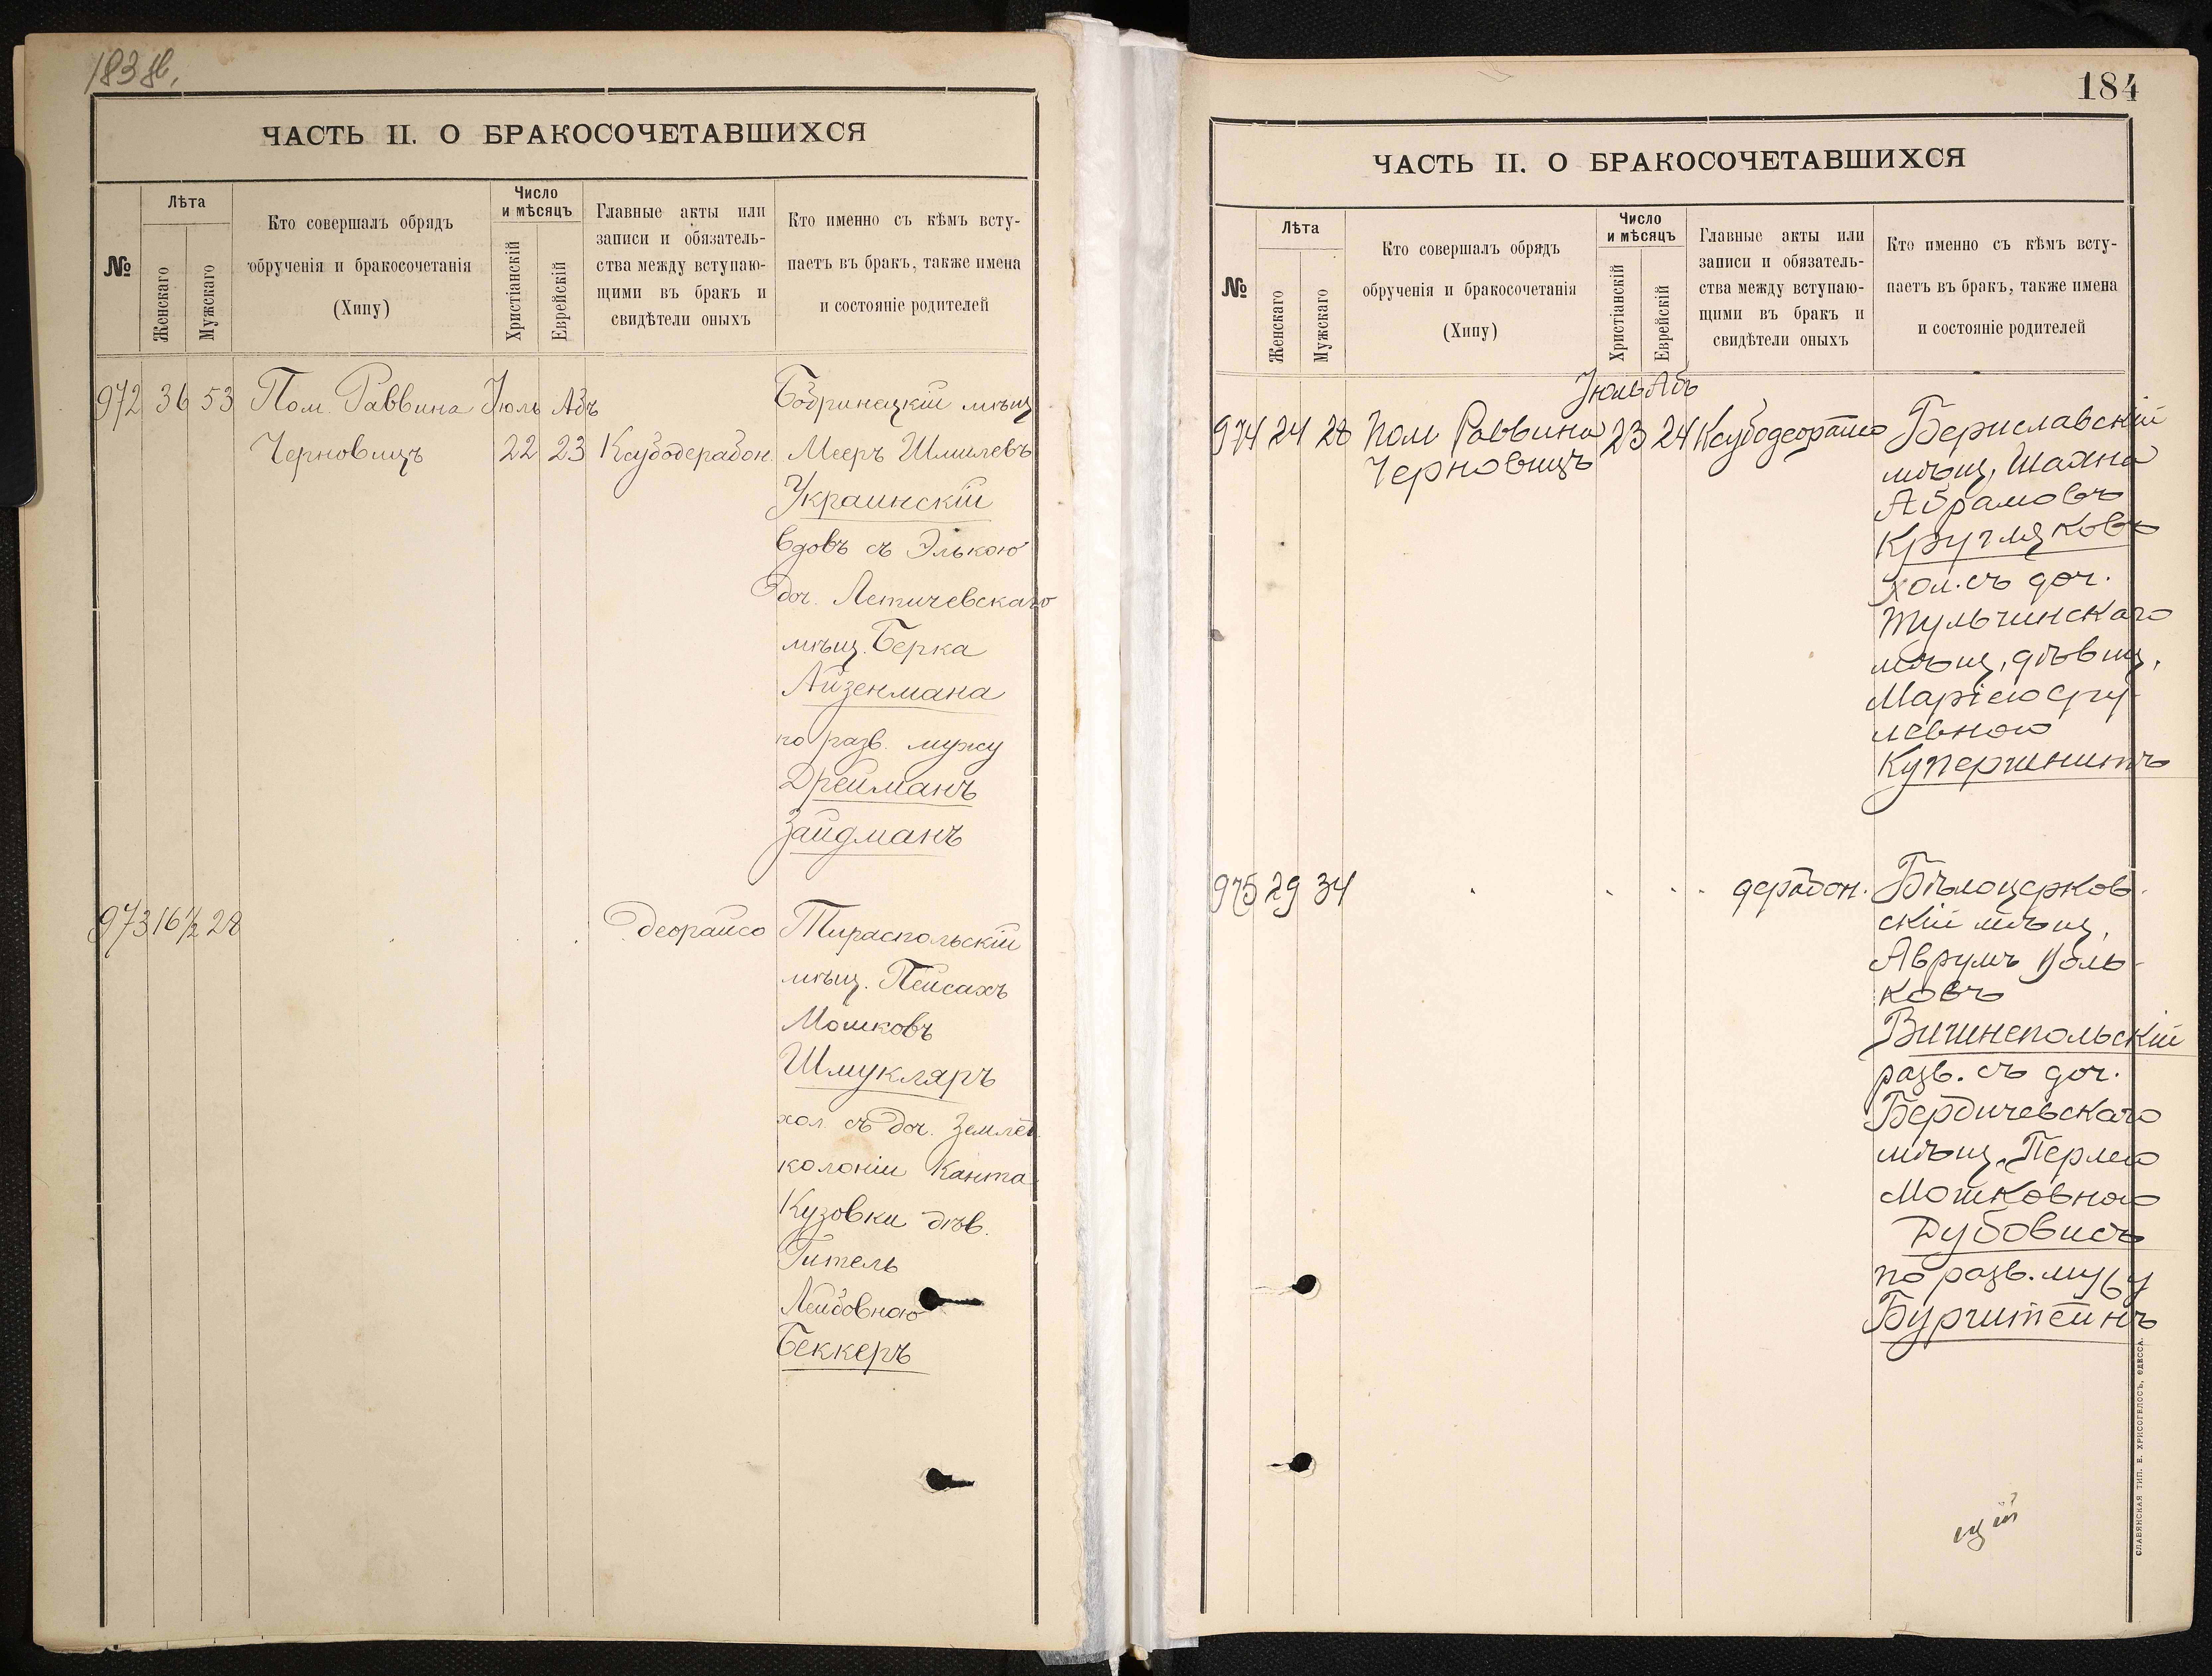 183 об.
ЧАСТЬ II. О БРАКОСОЧЕТАВШИХСЯ
№
Лѣта
Женскаго
Мужскаго
Кто совершалъ обрядъ
обрученія и бракосочетанія
(Хипу)
Число
и мѣсяцъ
Христіанскій
Еврейскій
Главные акты или
записи и обязатель-
ства между вступаю-
щими въ бракъ и
свидѣтели оныхъ
Кто именно съ кѣмъ всту-
паетъ въ бракъ, также имена
и состояніе родителей
972 36 53 Пом. Раввина Іюль Абъ Бобринецкій мѣщ
Черновицъ 22 23 Ксубодерабон. Мееръ Шмилевъ
Украинскій
вдовъ съ Элькою
доч. Летичевскаго
мѣщ. Берка
Айзенмана
по разв. мужу
Дрейманъ
Зайдманъ
973 16 1/2 28 деорайсо Тираспольскій
мѣщ. Пейсахъ
Мошковъ
Шмукляръ
хол. съ доч. землед.
колоніи Канта
Кузовки дѣв.
Гитель
Лейбовною
Беккеръ
184
ЧАСТЬ II. О БРАКОСОЧЕТАВШИХСЯ
№
Лѣта
Женскаго
Мужскаго
Кто совершалъ обрядъ
обрученія и бракосочетанія
(Хипу)
Число
и мѣсяцъ
Христіанскій
Еврейскій
Главные акты или
записи и обязатель-
ства между вступаю-
щими въ бракъ и
свидѣтели оныхъ
Кто именно съ кѣмъ всту-
паетъ въ бракъ, также имена
и состояніе родителей
Іюль Абъ
974 24 28 Пом Раввина 23 24 Ксубодеорайсо Бериславскій
Черновицъ мѣщ, Шахна
Абрамовъ
Кругляковъ
хол. съ доч.
Тульчинскаго
мѣщ, дѣвиц,
Маріею Сру-
левною
Купершнитъ
975 29 34 дерабон. Бѣлоцерков-
скій мѣщ,
Аврумъ Воль-
ковъ
Вишнепольскій
разв. съ доч.
Бердичевскаго
мѣщ, Перлею
Мошковною
Дубовисъ
по разв. мужу
Бурштейнъ
СЛАВЯНСКАЯ ТИП. Е. ХРИСОГЕЛОСЪ, ОДЕССА.